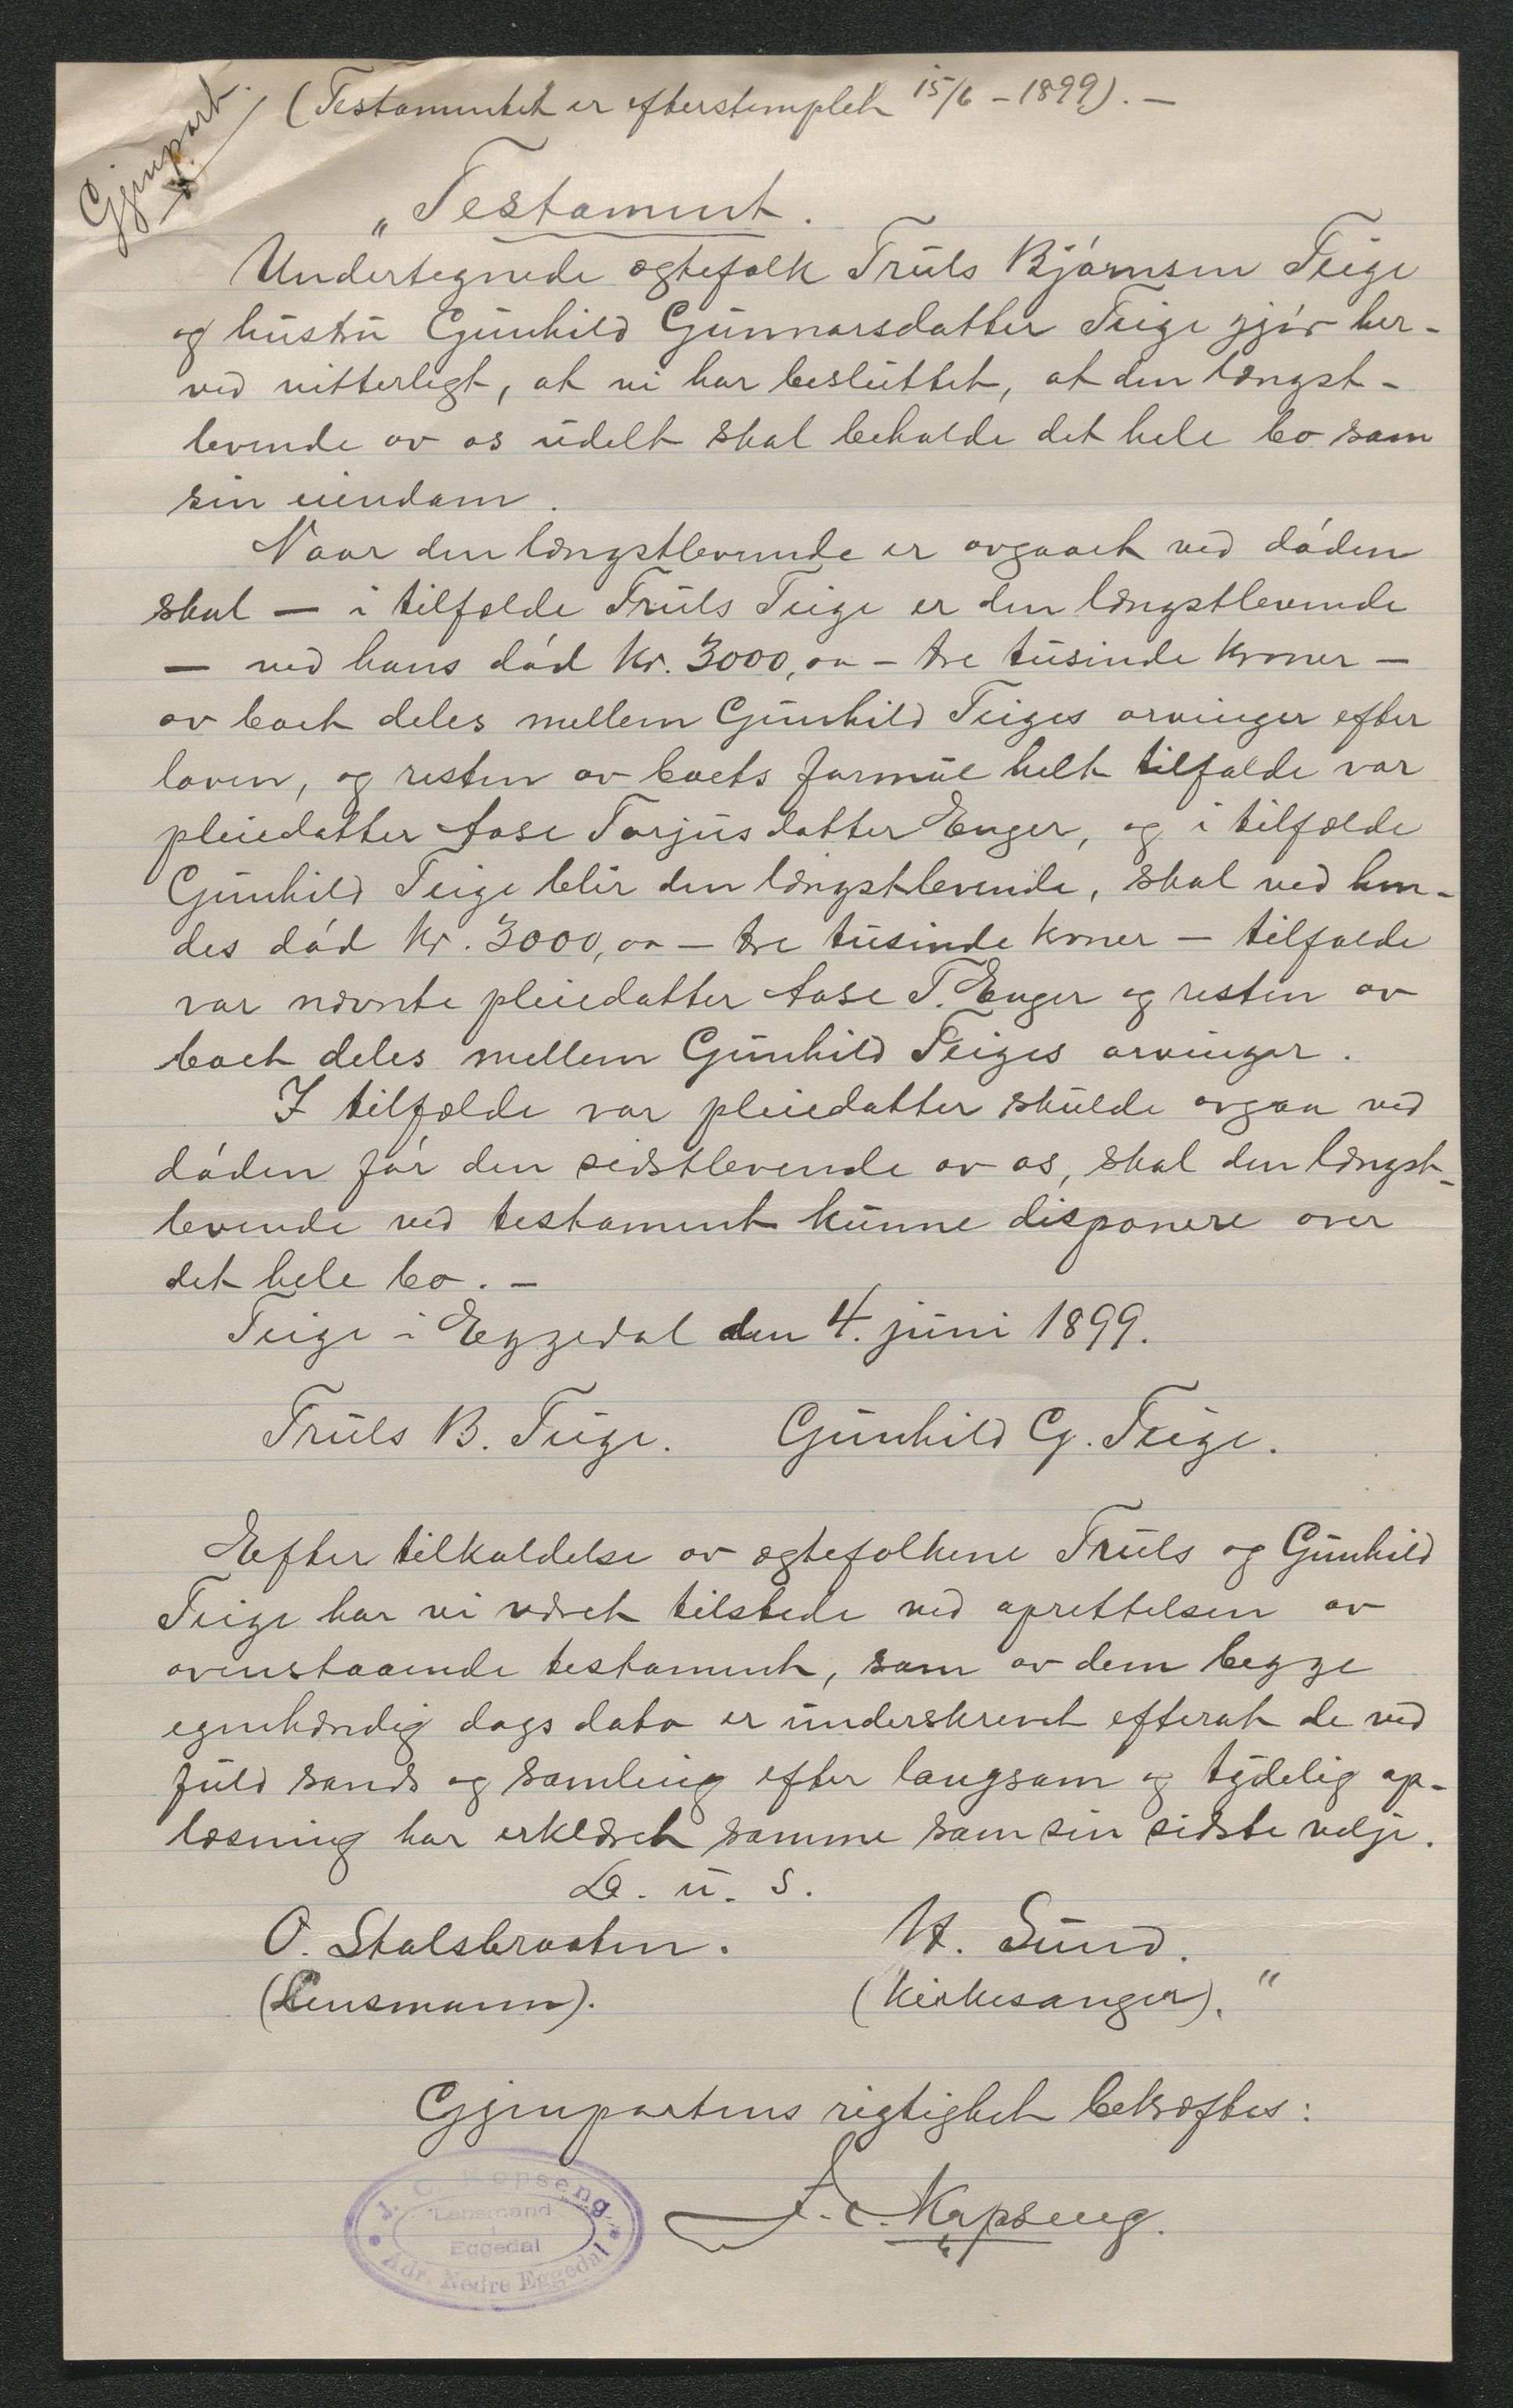 Gjenpart.
(Testamentet er efterstemplet 15/6 - 1899). -
„Testament.
Undertegnede ægtefolk Truls Bjørnsen Teige
og hustru Gunhild Gunnarsdatter Teige gjør her-
ved vitterligt, at vi har besluttet, at den længst-
levende av os udelt skal beholde det hele bo som
sin eiendom.
Naar den længstlevende er avgaaet ved døden
skal — i tilfælde Truls Teige er den længstlevende
— ved hans død kr. 3000,00 — tre tusinde kroner —
av boet deles mellem Gunhild Teiges arvinger efter
loven, og resten av boets formue helt tilfalde vor
pleiedatter Aase Torjusdatter Enger, og i tilfælde
Gunhild Teige blir den længstlevende, skal ved hen-
des død kr. 3000,00 — tre tusinde kroner — tilfalde
vor nævnte pleiedatter Aase T. Enger og resten av
boet deles mellem Gunhild Teiges arvinger.
I tilfælde vor pleiedatter skulde avgaa ved
døden før den sidstlevende av os, skal den længst-
levende ved testament kunne disponere over
det hele bo. -
Teige i Eggedal den 4. juni 1899.
Truls B. Teige. Gunhild G. Teige.
Efter tilkaldelse av ægtefolkene Truls og Gunhild
Teige har vi været tilstede ved oprettelsen av
ovenstaaende testament, som av dem begge
egenhændig dags dato er underskrevet efterat de ved
fuld sands og samling efter langsom og tydelig op-
læsning har erklæret samme som sin sidste vilje.
D. u. s.
O. Skalsbraaten. H. Sund.
(Lensmann). (Kirkesanger).“
Gjenpartens rigtighet bekræftes:
J. C. Kopseng.
J. C. Kopseng
Lensmand
i
Eggedal
Adr. Nedre Eggedal